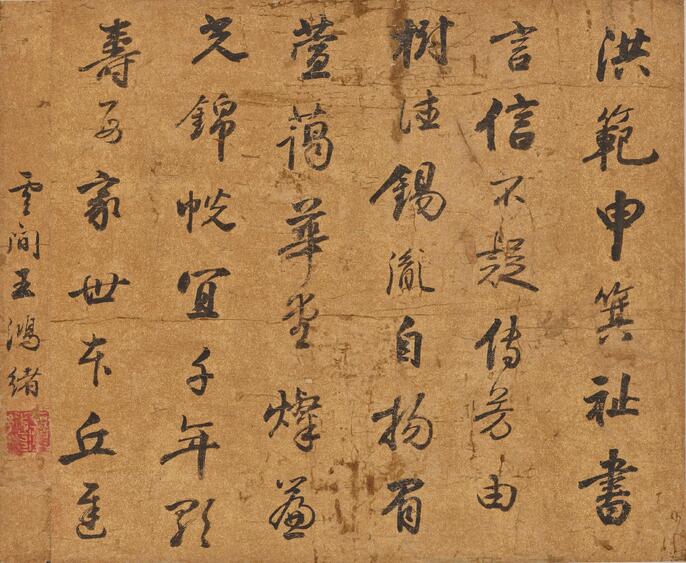 洪範申箕祉書
言信不疑傳芳由
樹德錫胤自揚眉
萱藹華堂燦
光錦帨宜千年
壽母家世本丘遲
雲間王鴻緒